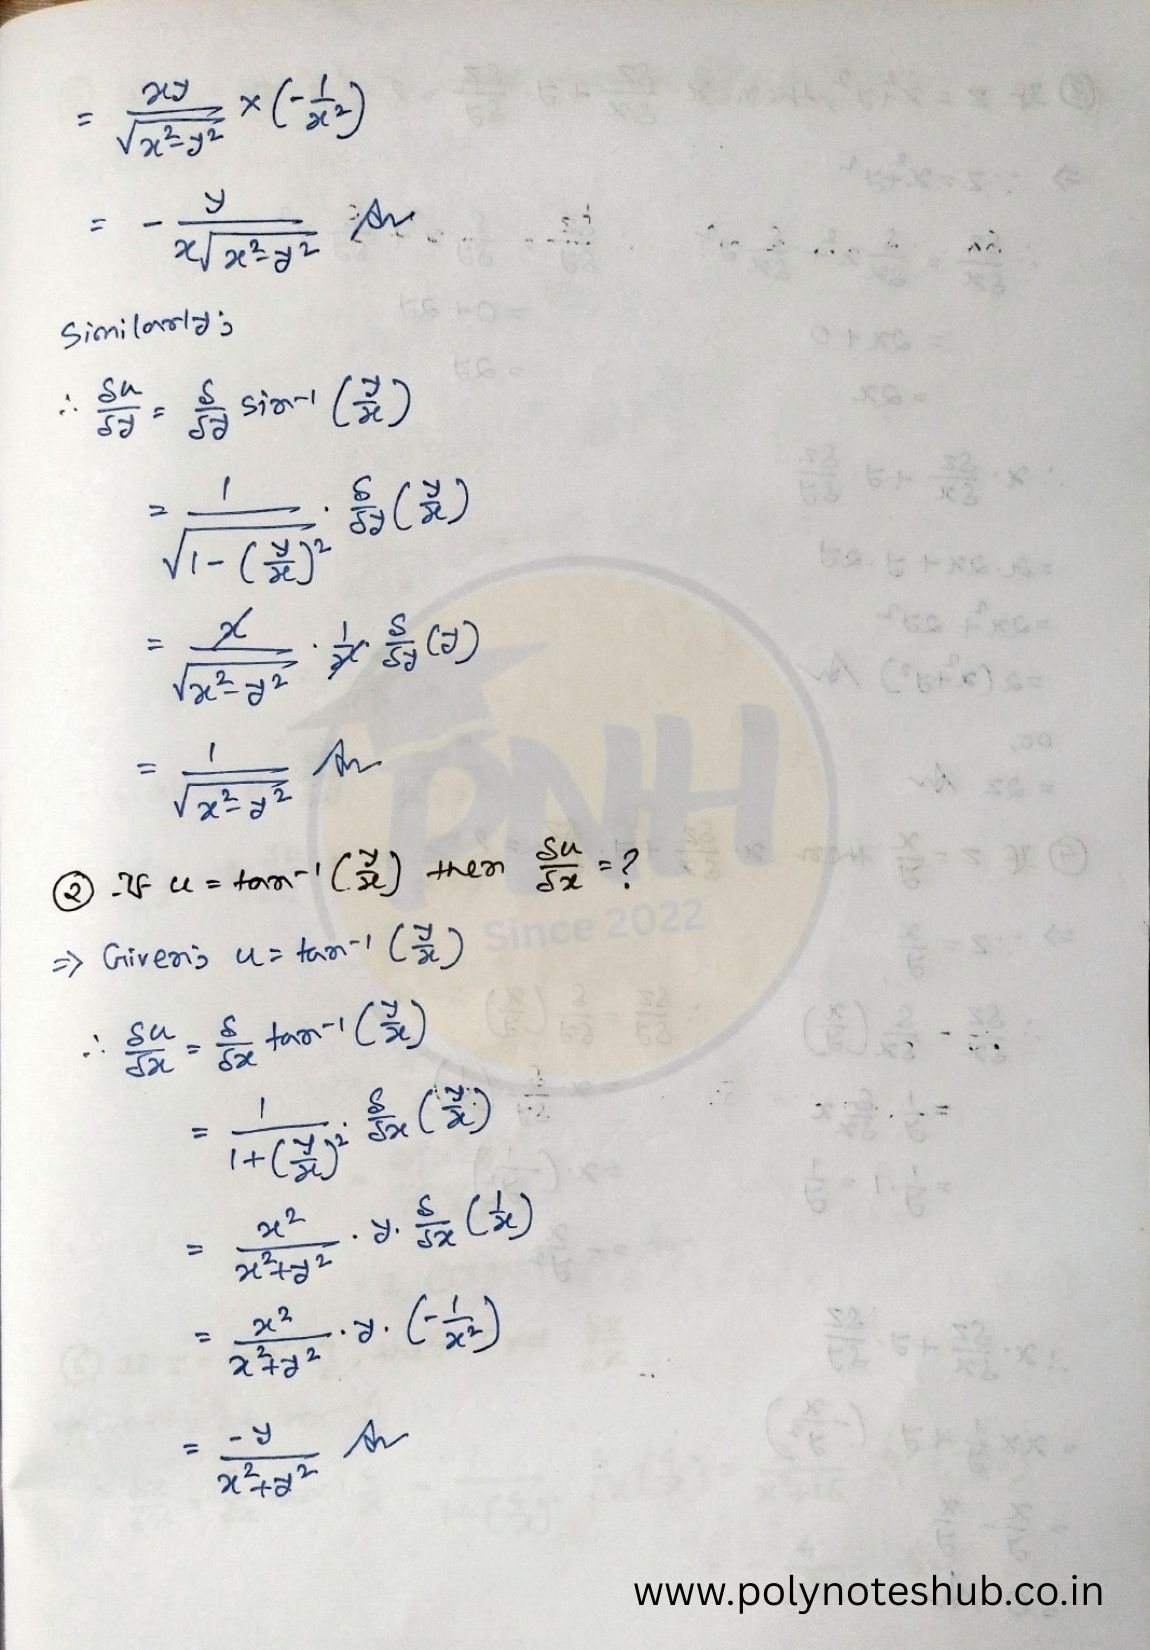 = xy/√(x²-y²) × (-1/x²)
= - y/(x√(x²-y²)) An
Similarly;
∴ δu/δy = δ/δy sin⁻¹(y/x)
= 1/√(1-(y/x)²) · δ/δy (y/x)
= x/√(x²-y²) · 1/x · δ/δy (y)
= 1/√(x²-y²) An
② If u = tan⁻¹(y/x) then δu/δx = ?
⇒ Given; u = tan⁻¹(y/x)
∴ δu/δx = δ/δx tan⁻¹(y/x)
= 1/(1+(y/x)²) · δ/δx (y/x)
= x²/(x²+y²) · y · δ/δx (1/x)
= x²/(x²+y²) · y · (-1/x²)
= -y/(x²+y²) An
PNH
Since 2022
www.polynoteshub.co.in